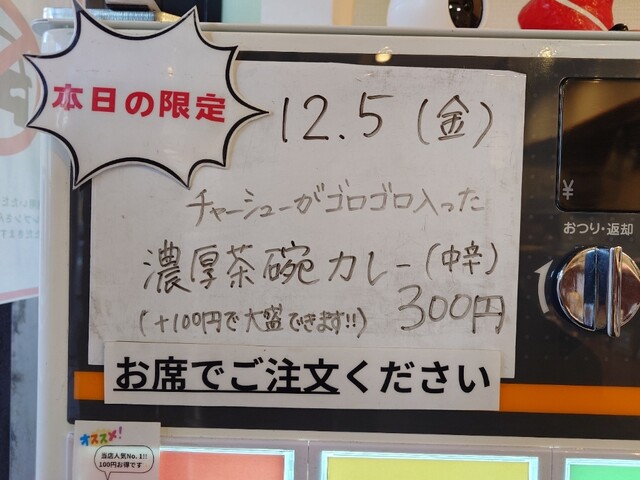 本日の限定
12.5(金)
チャーシューがゴロゴロ入った
濃厚茶碗カレー(中辛)
(+100円で大盛できます!!) 300円
お席でご注文ください
¥
おつり・返却
オススメ!
当店人気No.1!!
100円お得です